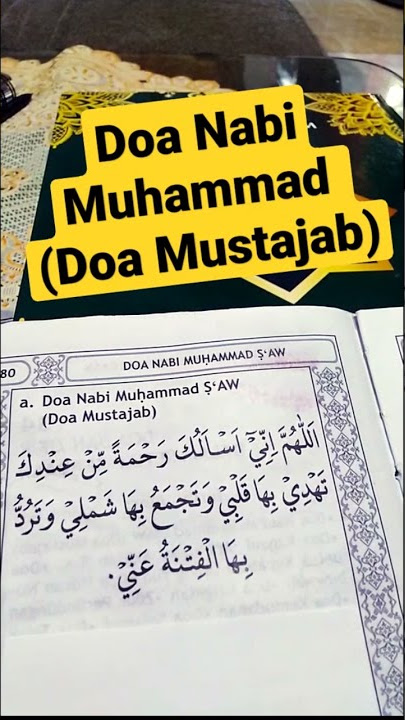 Doa Nabi
Muhammad
(Doa Mustajab)
80
DOA NABI MUḤAMMAD Ṣ‘AW
a. Doa Nabi Muḥammad Ṣ‘AW
(Doa Mustajab)
اَللّٰهُمَّ اِنِّيْٓ اَسْاَلُكَ رَحْمَةً مِّنْ عِنْدِكَ
تَهْدِيْ بِهَا قَلْبِيْ وَتَجْمَعُ بِهَا شَمْلِيْ وَتَرُدُّ
بِهَا الْفِتْنَةُ عَنِّيْ.